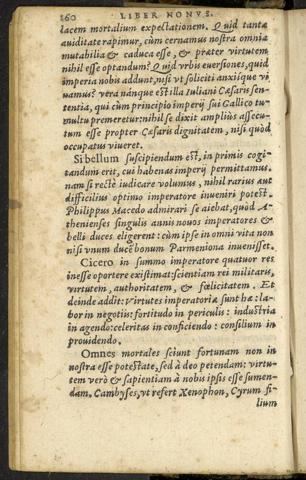 160 LIBER NONVS.
lacem mortalium expectationem. Quid tanta
auiditate rapimur, cùm cernamus nostra omnia
mutabilia & caduca esse, & præter virtutem
nihil esse optandum? Quid vrbis euersiones, quid
imperia nobis addunt, nisi vt soliciti anxiique vi
uamus? vera nánque est illa Iuliani Cæsaris sen-
tentia, qui cùm principio imperij sui Gallico tu-
multu premeretur: nihil se dixit ampliùs assecu-
tum esse propter Cæsaris dignitatem, nisi quòd
occupatus viueret.
Si bellum suscipiendum est, in primis cogi-
tandum erit, cui habenas imperij permittamus.
nam si rectè iudicare volumus, nihil rarius aut
difficilius optimo imperatore inueniri potest.
Philippus Macedo admirari se aiebat, quòd A-
thenienses singulis annis nouos imperatores &
belli duces eligerent: cùm ipse in omni vita non
nisi vnum ducē bonum Parmeniona inuenisset.
Cicero in summo imperatore quatuor res
inesse oportere existimat: scientiam rei militaris,
virtutem, authoritatem, & fœlicitatem. Et
deinde addit: virtutes imperatoriæ sunt hæ: la-
bor in negotiis: fortitudo in periculis: industria
in agendo: celeritas in conficiendo: consilium in
prouidendo.
Omnes mortales sciunt fortunam non in
nostra esse potestate, sed à deo petendam: virtu-
tem verò & sapientiam à nobis ipsis esse sumen-
dam. Cambyses, vt refert Xenophon, Cyrum fi-
lium